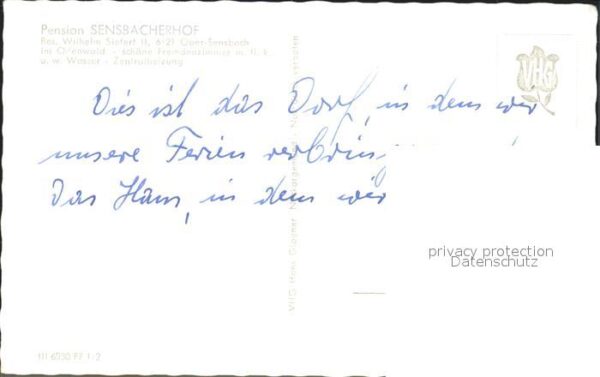 Pension SENSBACHERHOF
Bes. Wilhelm Siefert II, 6121 Unter-Sensbach
im Odenwald - schöne Fremdenzimmer m. fl. k.
u. w. Wasser - Zentralheizung
VHG
Dies ist das Dorf, in dem wir
unsere Ferien verbring
Das Haus, in dem wir
privacy protection
Datenschutz
VHG Hans